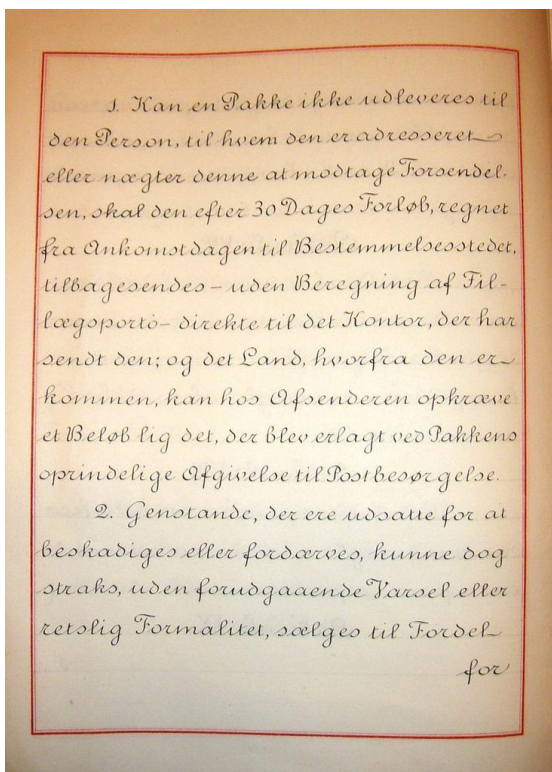 1. Kan en Pakke ikke udleveres til
den Person, til hvem den er adresseret
eller nægter denne at modtage Forsendel-
sen, skal den efter 30 Dages Forløb, regnet
fra Ankomstdagen til Bestemmelsesstedet,
tilbagesendes – uden Beregning af Til-
lægsporto – direkte til det Kontor, der har
sendt den; og det Land, hvorfra den er
kommen, kan hos Afsenderen opkræve
et Beløb lig det, der blev erlagt ved Pakkens
oprindelige Afgivelse til Postbesørgelse.
2. Genstande, der ere udsatte for at
beskadiges eller fordærves, kunne dog
straks, uden forudgaaende Varsel eller
retslig Formalitet, sælges til Fordel
for